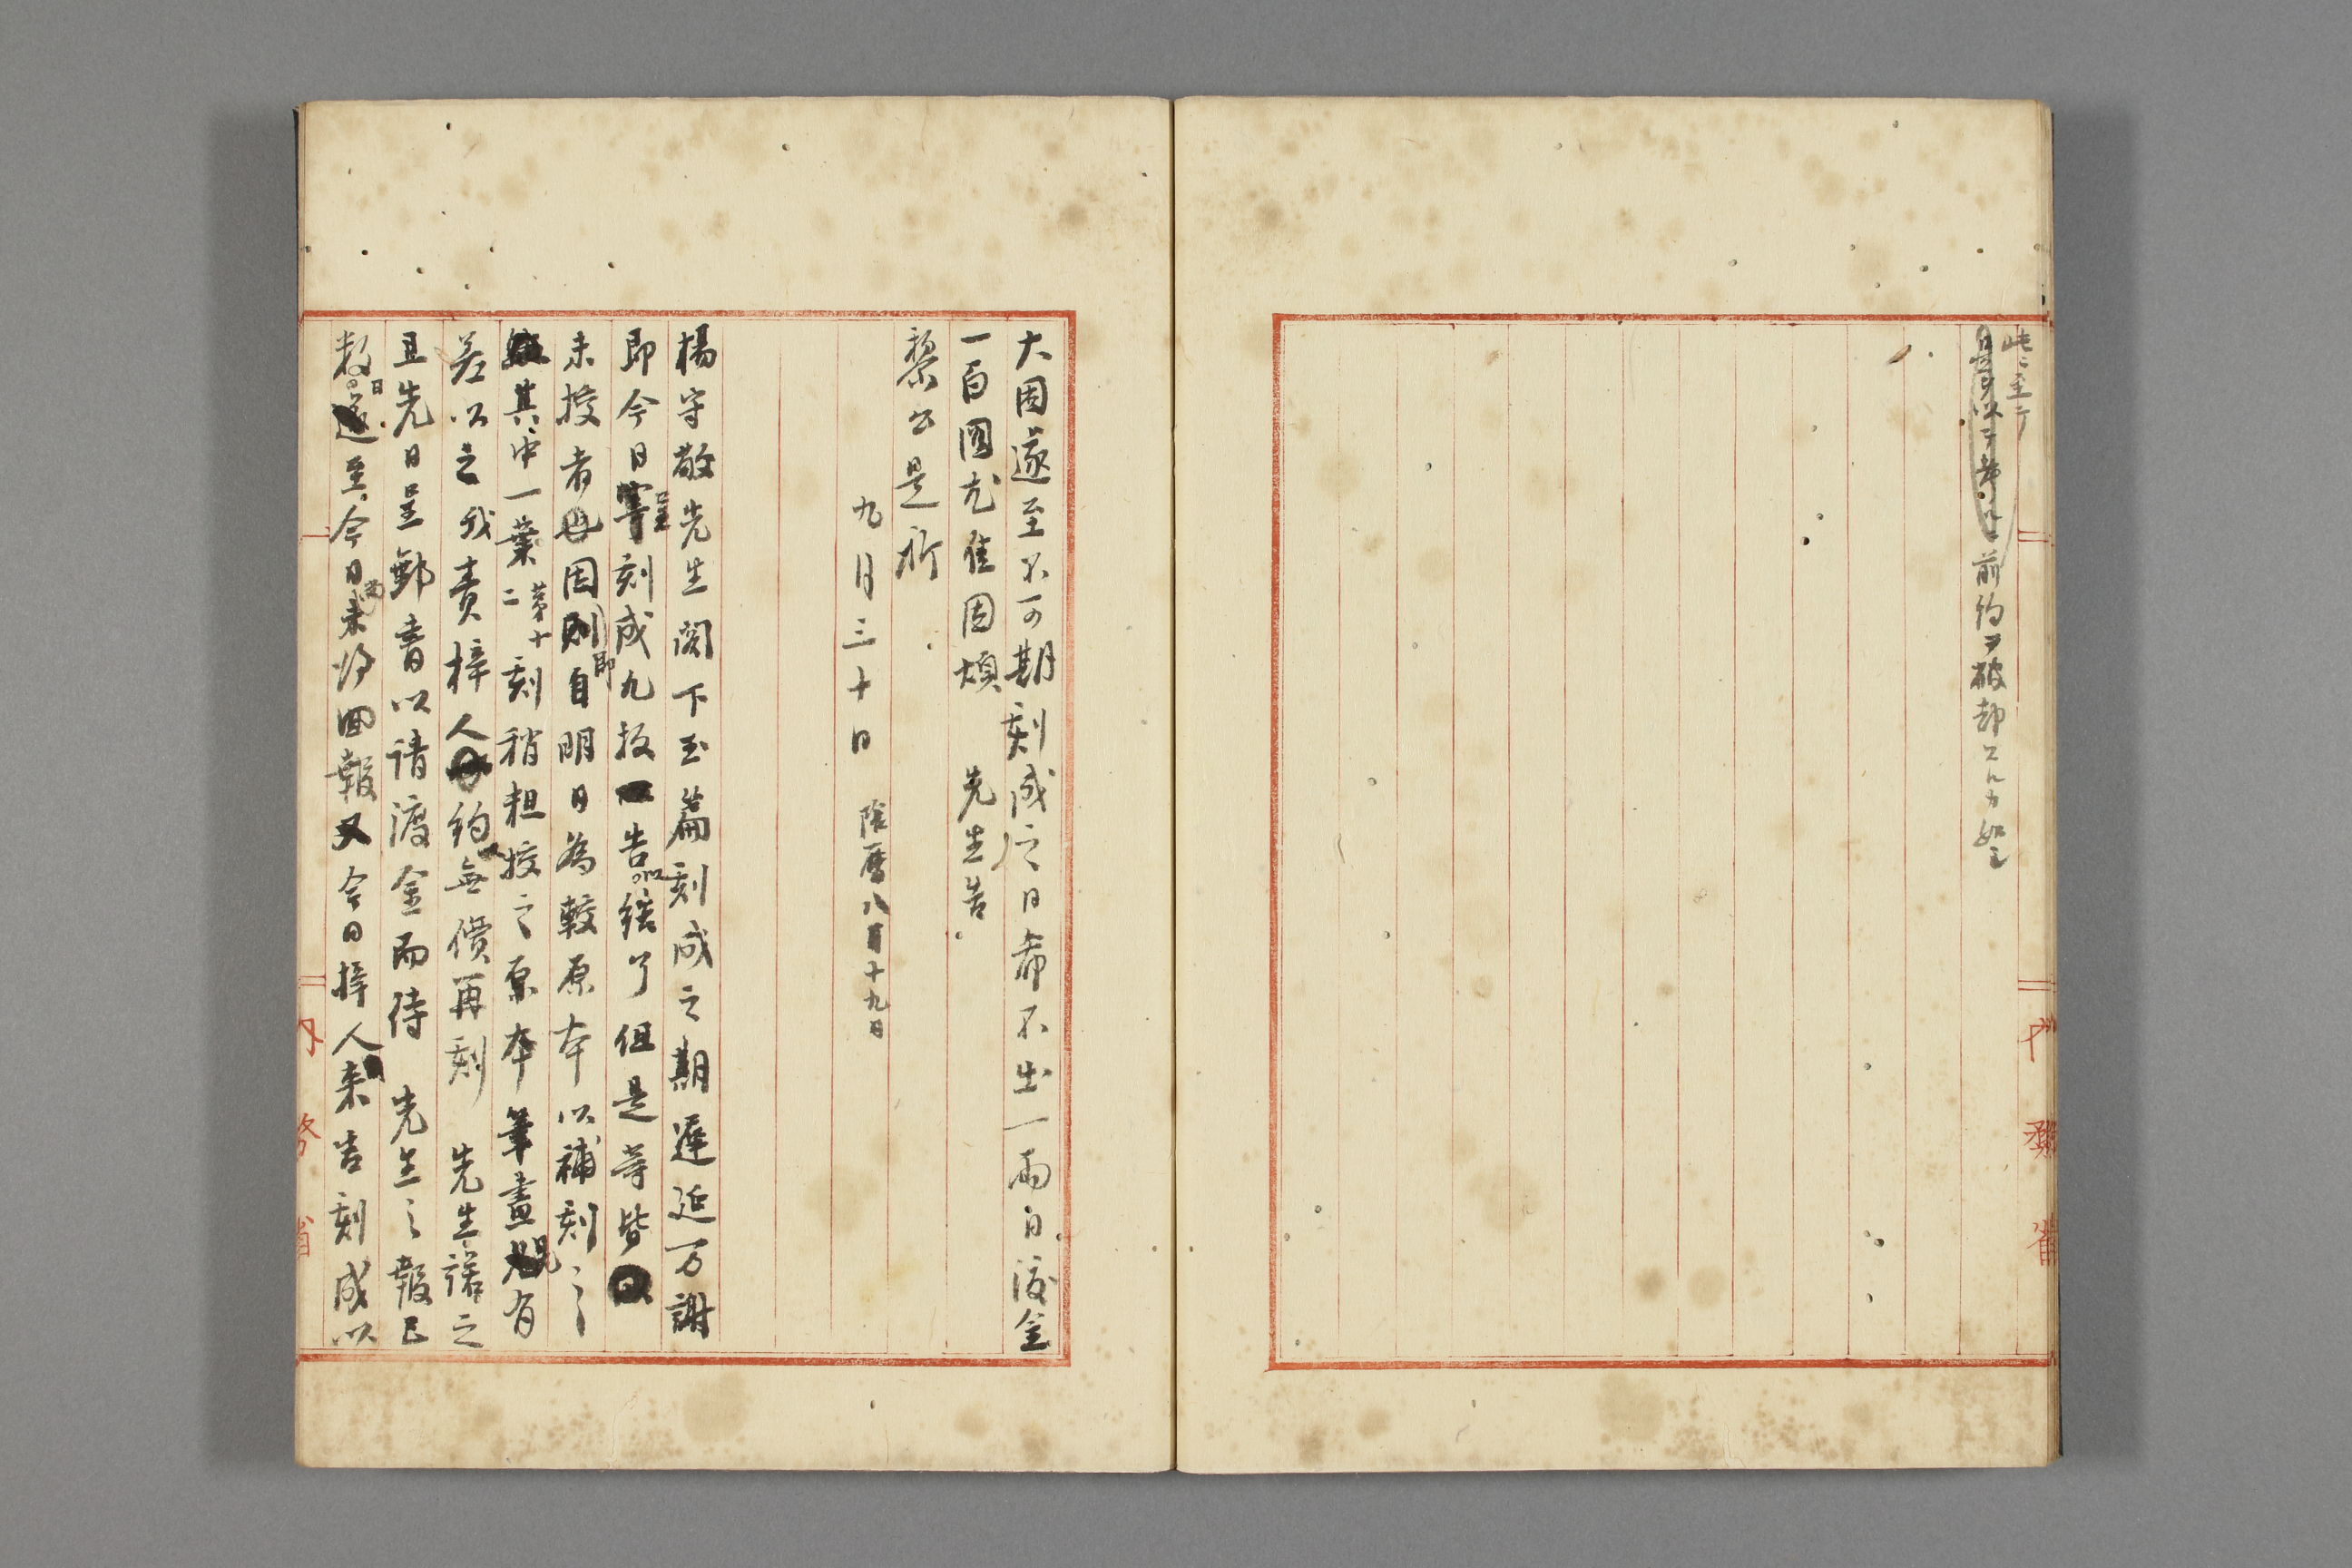 此ニ至テ
前約ヲ破却スルカ如シ
大因遂至不可期刻成之日希不出一両日渡金
一百圓尤佳因煩 先生告
黎公是祈
九月三十日 陰暦八月十九日
楊守敬先生閣下玉篇刻成之期遲延万謝
即今日呈刻成九板告以結了但是等皆
未挍者因即自明日為較原本以補刻之
其中一葉第十二刻稍粗挍之原本筆畫有
差以之我責梓人約無價再刻 先生諾之
且先日呈郵書以請渡金而待 先生之報已
数日至今日未得回報今日梓人来告刻成以
内務省
内務省